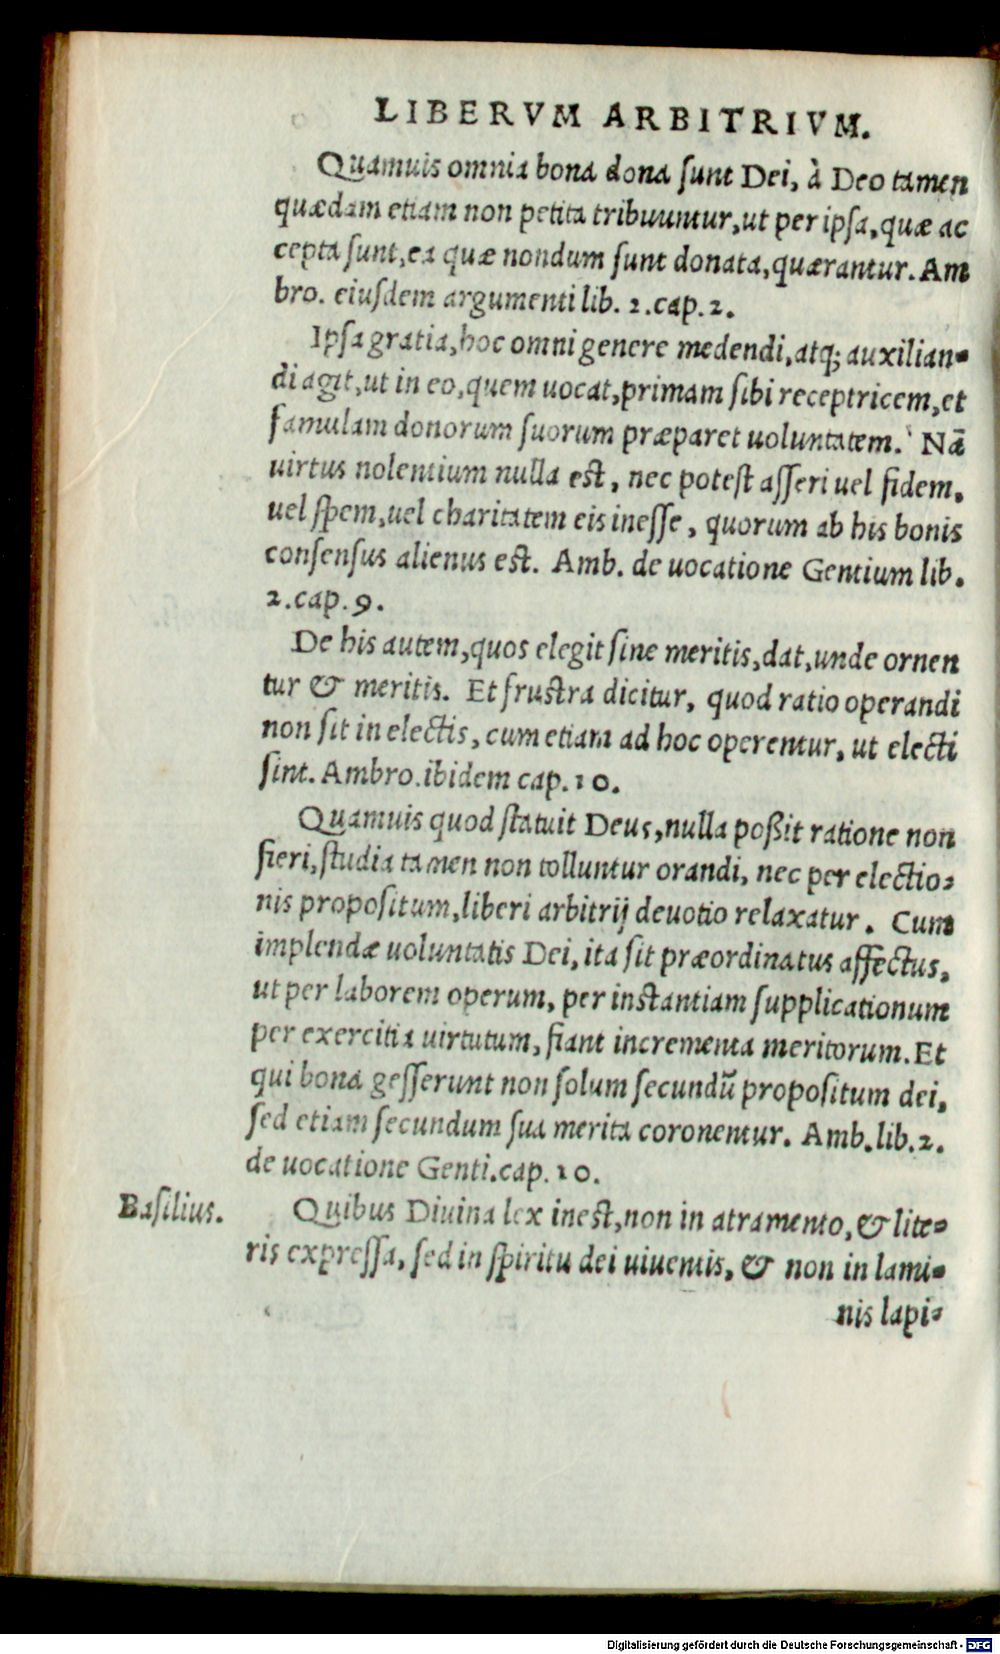 LIBERVM ARBITRIVM.
Quamuis omnia bona dona ſunt Dei, à Deo tamen
quædam etiam non petita tribuuntur, ut per ipſa, quæ ac
cepta ſunt, ea quæ nondum ſunt donata, quærantur. Am
bro. eiuſdem argumenti lib. 2. cap. 2.
Ipſa gratia, hoc omni genere medendi, atq; auxilian-
di agit, ut in eo, quem uocat, primam ſibi receptricem, et
famulam donorum ſuorum præparet uoluntatem. Nā
uirtus nolentium nulla eſt, nec poteſt aſſeri uel fidem,
uel ſpem, uel charitatem eis ineſſe, quorum ab his bonis
conſenſus alienus eſt. Amb. de uocatione Gentium lib.
2. cap. 9.
De his autem, quos elegit ſine meritis, dat, unde ornen
tur & meritis. Et fruſtra dicitur, quod ratio operandi
non ſit in electis, cum etiam ad hoc operentur, ut electi
ſint. Ambro. ibidem cap. 10.
Quamuis quod ſtatuit Deus, nulla poßit ratione non
fieri, ſtudia tamen non tolluntur orandi, nec per electio-
nis propoſitum, liberi arbitrij deuotio relaxatur. Cum
implendæ uoluntatis Dei, ita ſit præordinatus affectus,
ut per laborem operum, per inſtantiam ſupplicationum
per exercitia uirtutum, fiant incrementa meritorum. Et
qui bona geſſerunt non ſolum ſecundū propoſitum dei,
ſed etiam ſecundum ſua merita coronentur. Amb. lib. 2.
de uocatione Genti. cap. 10.
Baſilius. Quibus Diuina lex ineſt, non in atramento, & lite-
ris expreſſa, ſed in ſpiritu dei uiuentis, & non in lami-
nis lapi-
Digitalisierung gefördert durch die Deutsche Forschungsgemeinschaft - DFG